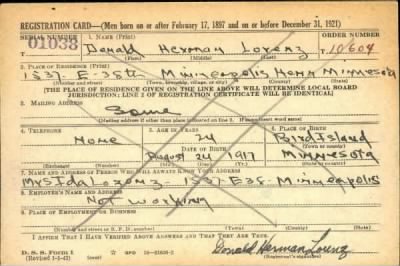 REGISTRATION CARD—(Men born on or after February 17, 1897 and on or before December 31, 1921)
SERIAL NUMBER 1. NAME (Print) ORDER NUMBER
01033 Donald Herman Lorenz T 10604
(First) (Middle) (Last)
2. PLACE OF RESIDENCE (Print)
1537-E-35th Minneapolis Henn Minnesota
(Number and street) (Town, township, village, or city) (County) (State)
[THE PLACE OF RESIDENCE GIVEN ON THE LINE ABOVE WILL DETERMINE LOCAL BOARD
JURISDICTION; LINE 2 OF REGISTRATION CERTIFICATE WILL BE IDENTICAL]
3. MAILING ADDRESS
Same
(Mailing address if other than place indicated on line 2. If same insert word same)
4. TELEPHONE 5. AGE IN YEARS 6. PLACE OF BIRTH
None 24 Bird Island
DATE OF BIRTH
August 24 1917 Minnesota
(Exchange) (Number) (Mo.) (Day) (Yr.) (State or country)
7. NAME AND ADDRESS OF PERSON WHO WILL ALWAYS KNOW YOUR ADDRESS
Mrs Ida Lorenz 1537 E 35- Minneapolis
8. EMPLOYER'S NAME AND ADDRESS
Not working
9. PLACE OF EMPLOYMENT OR BUSINESS
(Number and street or R. F. D. number) (Town) (County) (State)
I AFFIRM THAT I HAVE VERIFIED ABOVE ANSWERS AND THAT THEY ARE TRUE.
D. S. S. Form 1
(Revised 1-5-42) GPO 16-21630-2
Donald Herman Lorenz
(Registrant's signature)